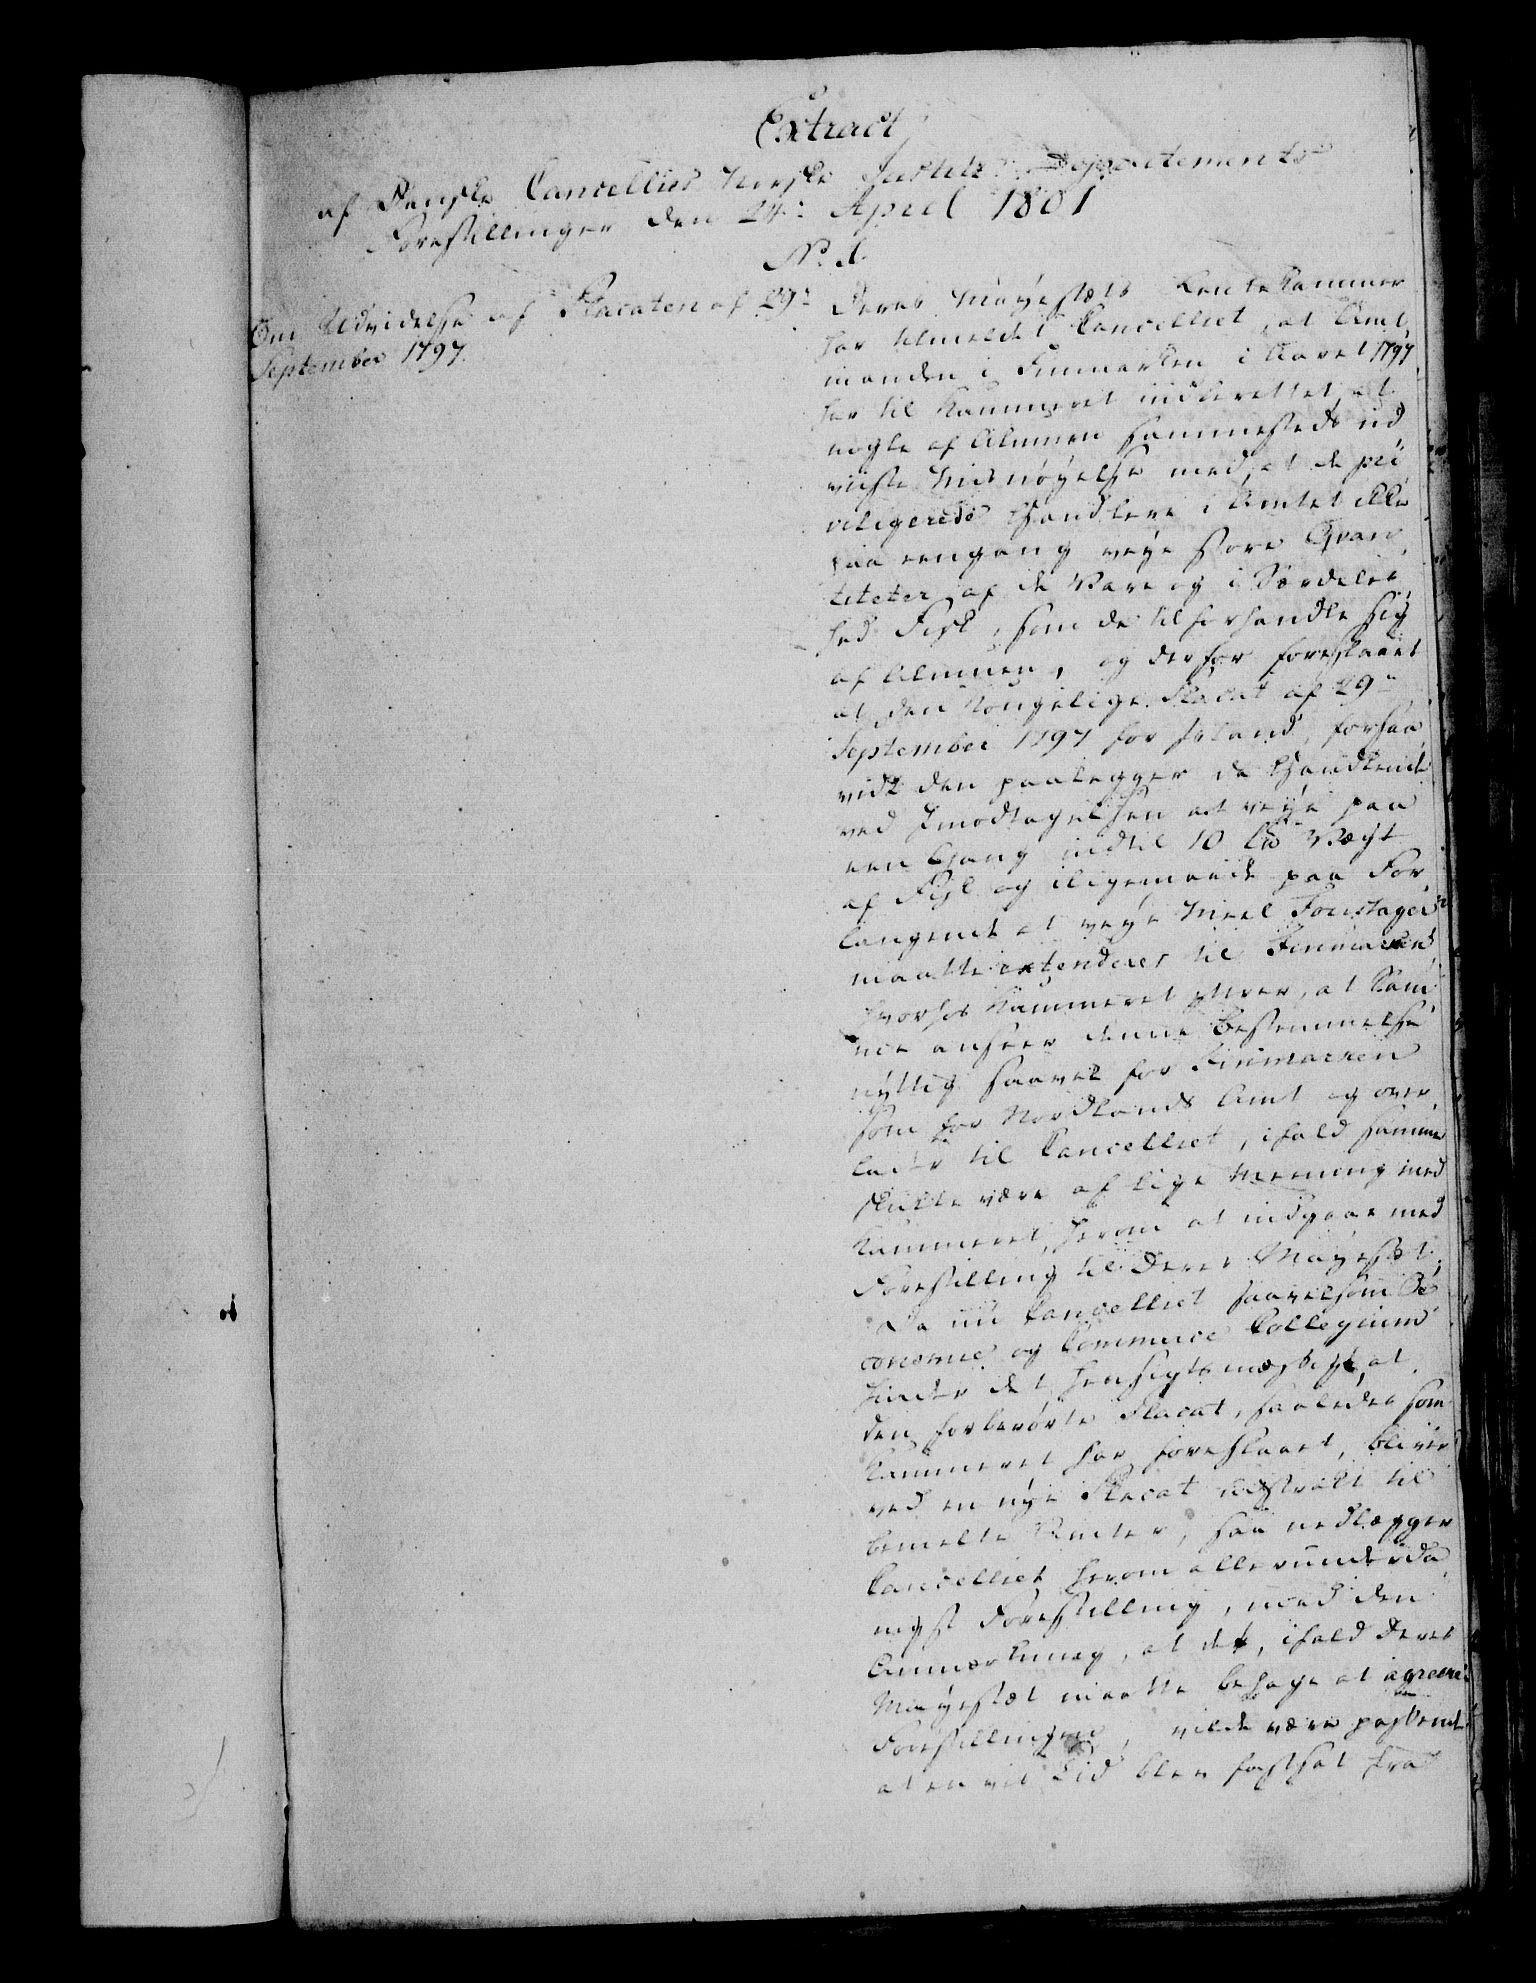 Extract
af Danske Cancellies Norske Justits Departements
Forestillinger den 24de April 1801
No. 1.
Om Udvidelse af Placaten af 29de
September 1797.
Deres Mayestæts Rentekammer
har tilmeldt Cancelliet, at Amt,,
manden i Finmarken i Aaret 1797
har til Kammeret indberettet, at
nogle af Almuen sammesteds ud
viiste Misnøyelse med, at de pri
viligerede Handlere i Amtet ikke
paa eengang veye store Qvan
titeter af de Vare og i Særdeles,,
hed Fisk, som de tilforhandle sig
af Almuen, og derfor foreslaaet
at den Kongelige Placat af 29de
September 1797 for Island, forsaa,,
vidt den paalegger de Handlende
ved Imodtagelsen at veye paa
een Gang indtil 10 L℔ Vægt
af Fisk og iligemaade paa For,,
langende at veye Meel Foustager
maatte extenderes til Finmarken,
hvorhos Kammeret yttrer, at Sam
me anseer denne Bestemmelse
nyttig saavel for Finmarken
som for Nordlands Amt og over,,
lader til Cancelliet, ifald samme
skulle være af lige Meening med
Kammeret, herom at indgaae med
Forestilling til Deres Mayestæt;
Da nu Cancelliet saavelsom Oe
conomie og Commerce Collegium
finder det hensigtsmæssigt, at
den forberørte Placat, saaledes som
Kammeret har foreslaaet, bliver
ved en nye Placat udstrakt til
bemelte Amter, saa nedlægger
Cancelliet herom allerunderda,,
nigst Forestilling, med den
Anmærkning, at det, ifald Deres
Mayestæt maatte behage at agreere
Forestillingen, vilde være passende
at en vis Tid blev fastsat fra